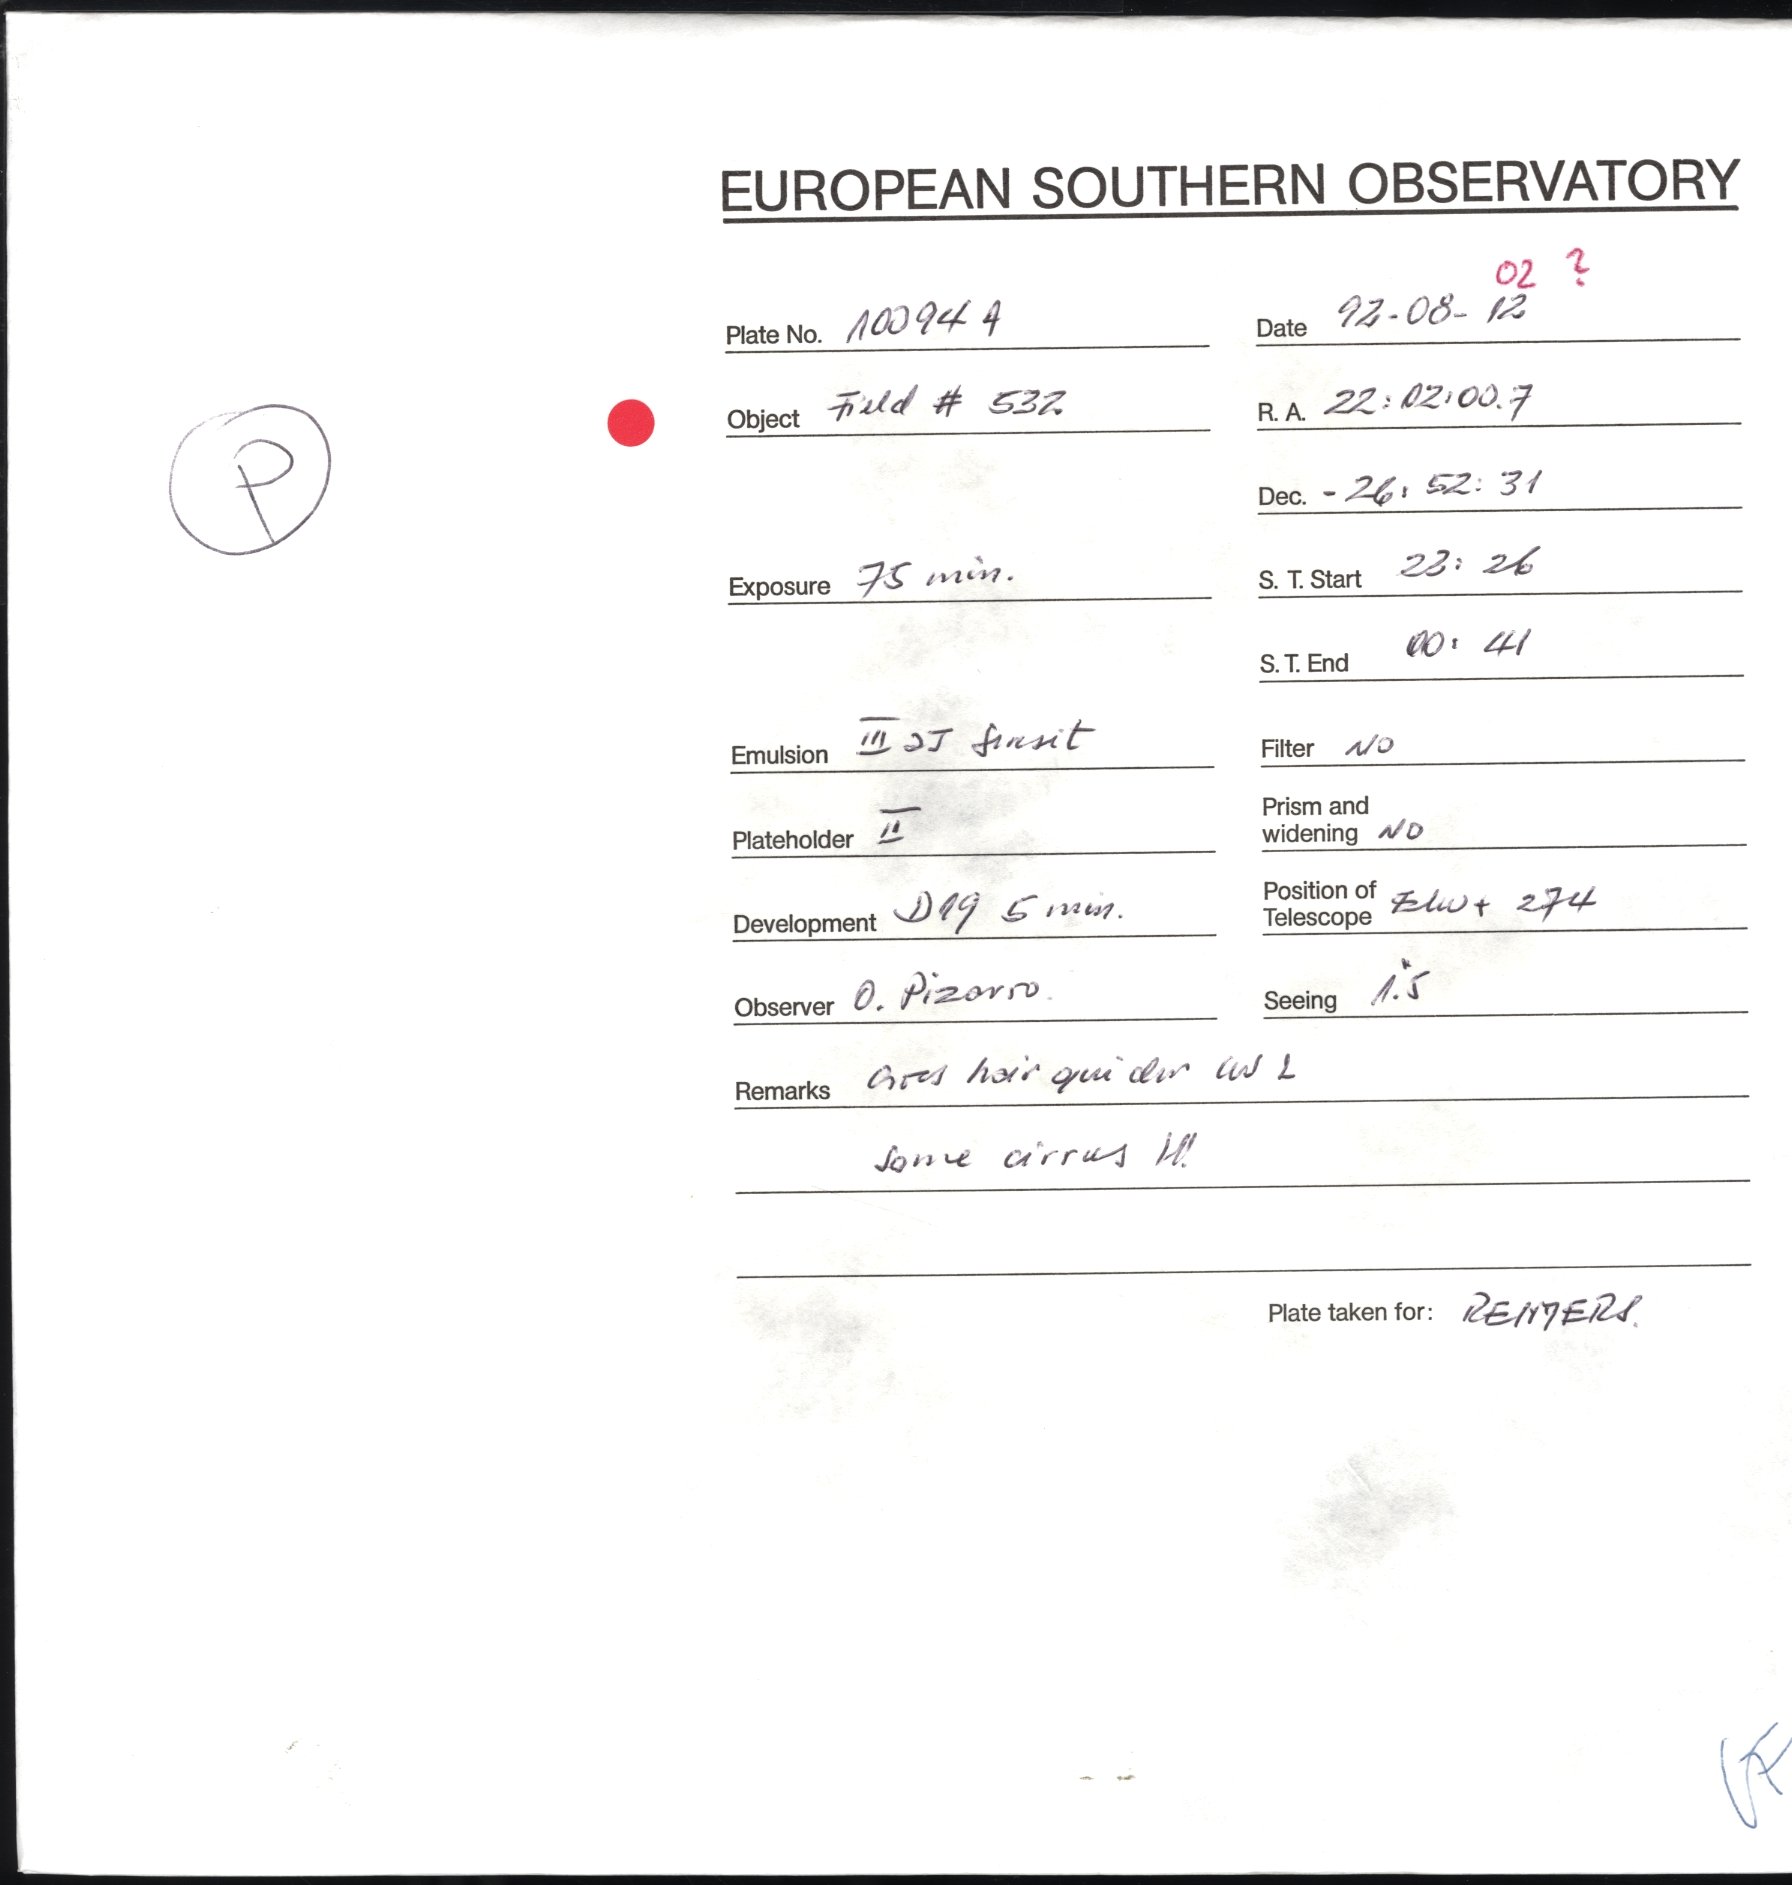 EUROPEAN SOUTHERN OBSERVATORY
02 ?
Plate No. 10094 A Date 92-08-12
Object Field # 532 R. A. 22:02:00.7
P
Dec. -26:52:31
Exposure 75 min. S. T. Start 23:26
S. T. End 00:41
Emulsion III aJ sensit Filter NO
Prism and
Plateholder II widening NO
Position of
Development D19 5 min. Telescope + 274
Observer O. Pizarro. Seeing 1".5
Remarks hair
Some cirrus !!!
Plate taken for: REIMERS.